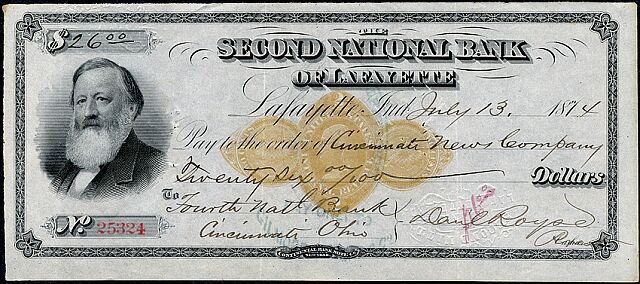 $26 00
SECOND NATIONAL BANK
OF LAFAYETTE
Lafayette, Ind July 13. 1874
Pay to the order of Cincinnati News Company
Twenty Six 00/100 Dollars
To
Fourth Nat'l Bank
Cincinnati Ohio
Dan'l Royse
No. 25324
CONTINENTAL BANK NOTE CO. NEW YORK